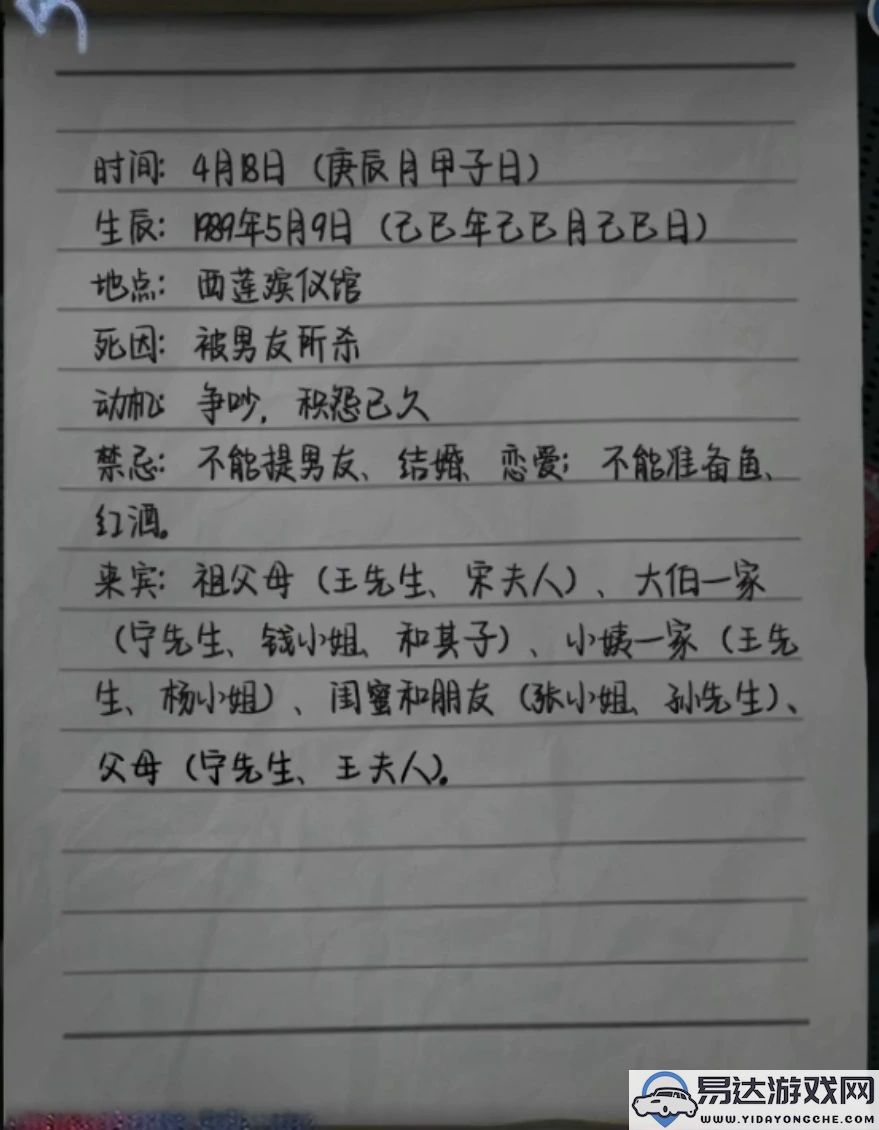 时间：4月18日（庚辰月甲子日）
生辰：1989年5月9日（己巳年己巳月己巳日）
地点：西莲殡仪馆
死因：被男友所杀
动机：争吵，积怨已久
禁忌：不能提男友、结婚、恋爱；不能准备鱼、
红酒。
来宾：祖父母（王先生、宋夫人）、大伯一家
（宁先生、钱小姐、和其子）、小姨一家（王先
生、杨小姐）、闺蜜和朋友（张小姐、孙先生）、
父母（宁先生、王夫人）。
易达游戏网
WWW.YIDAYONGCHE.COM